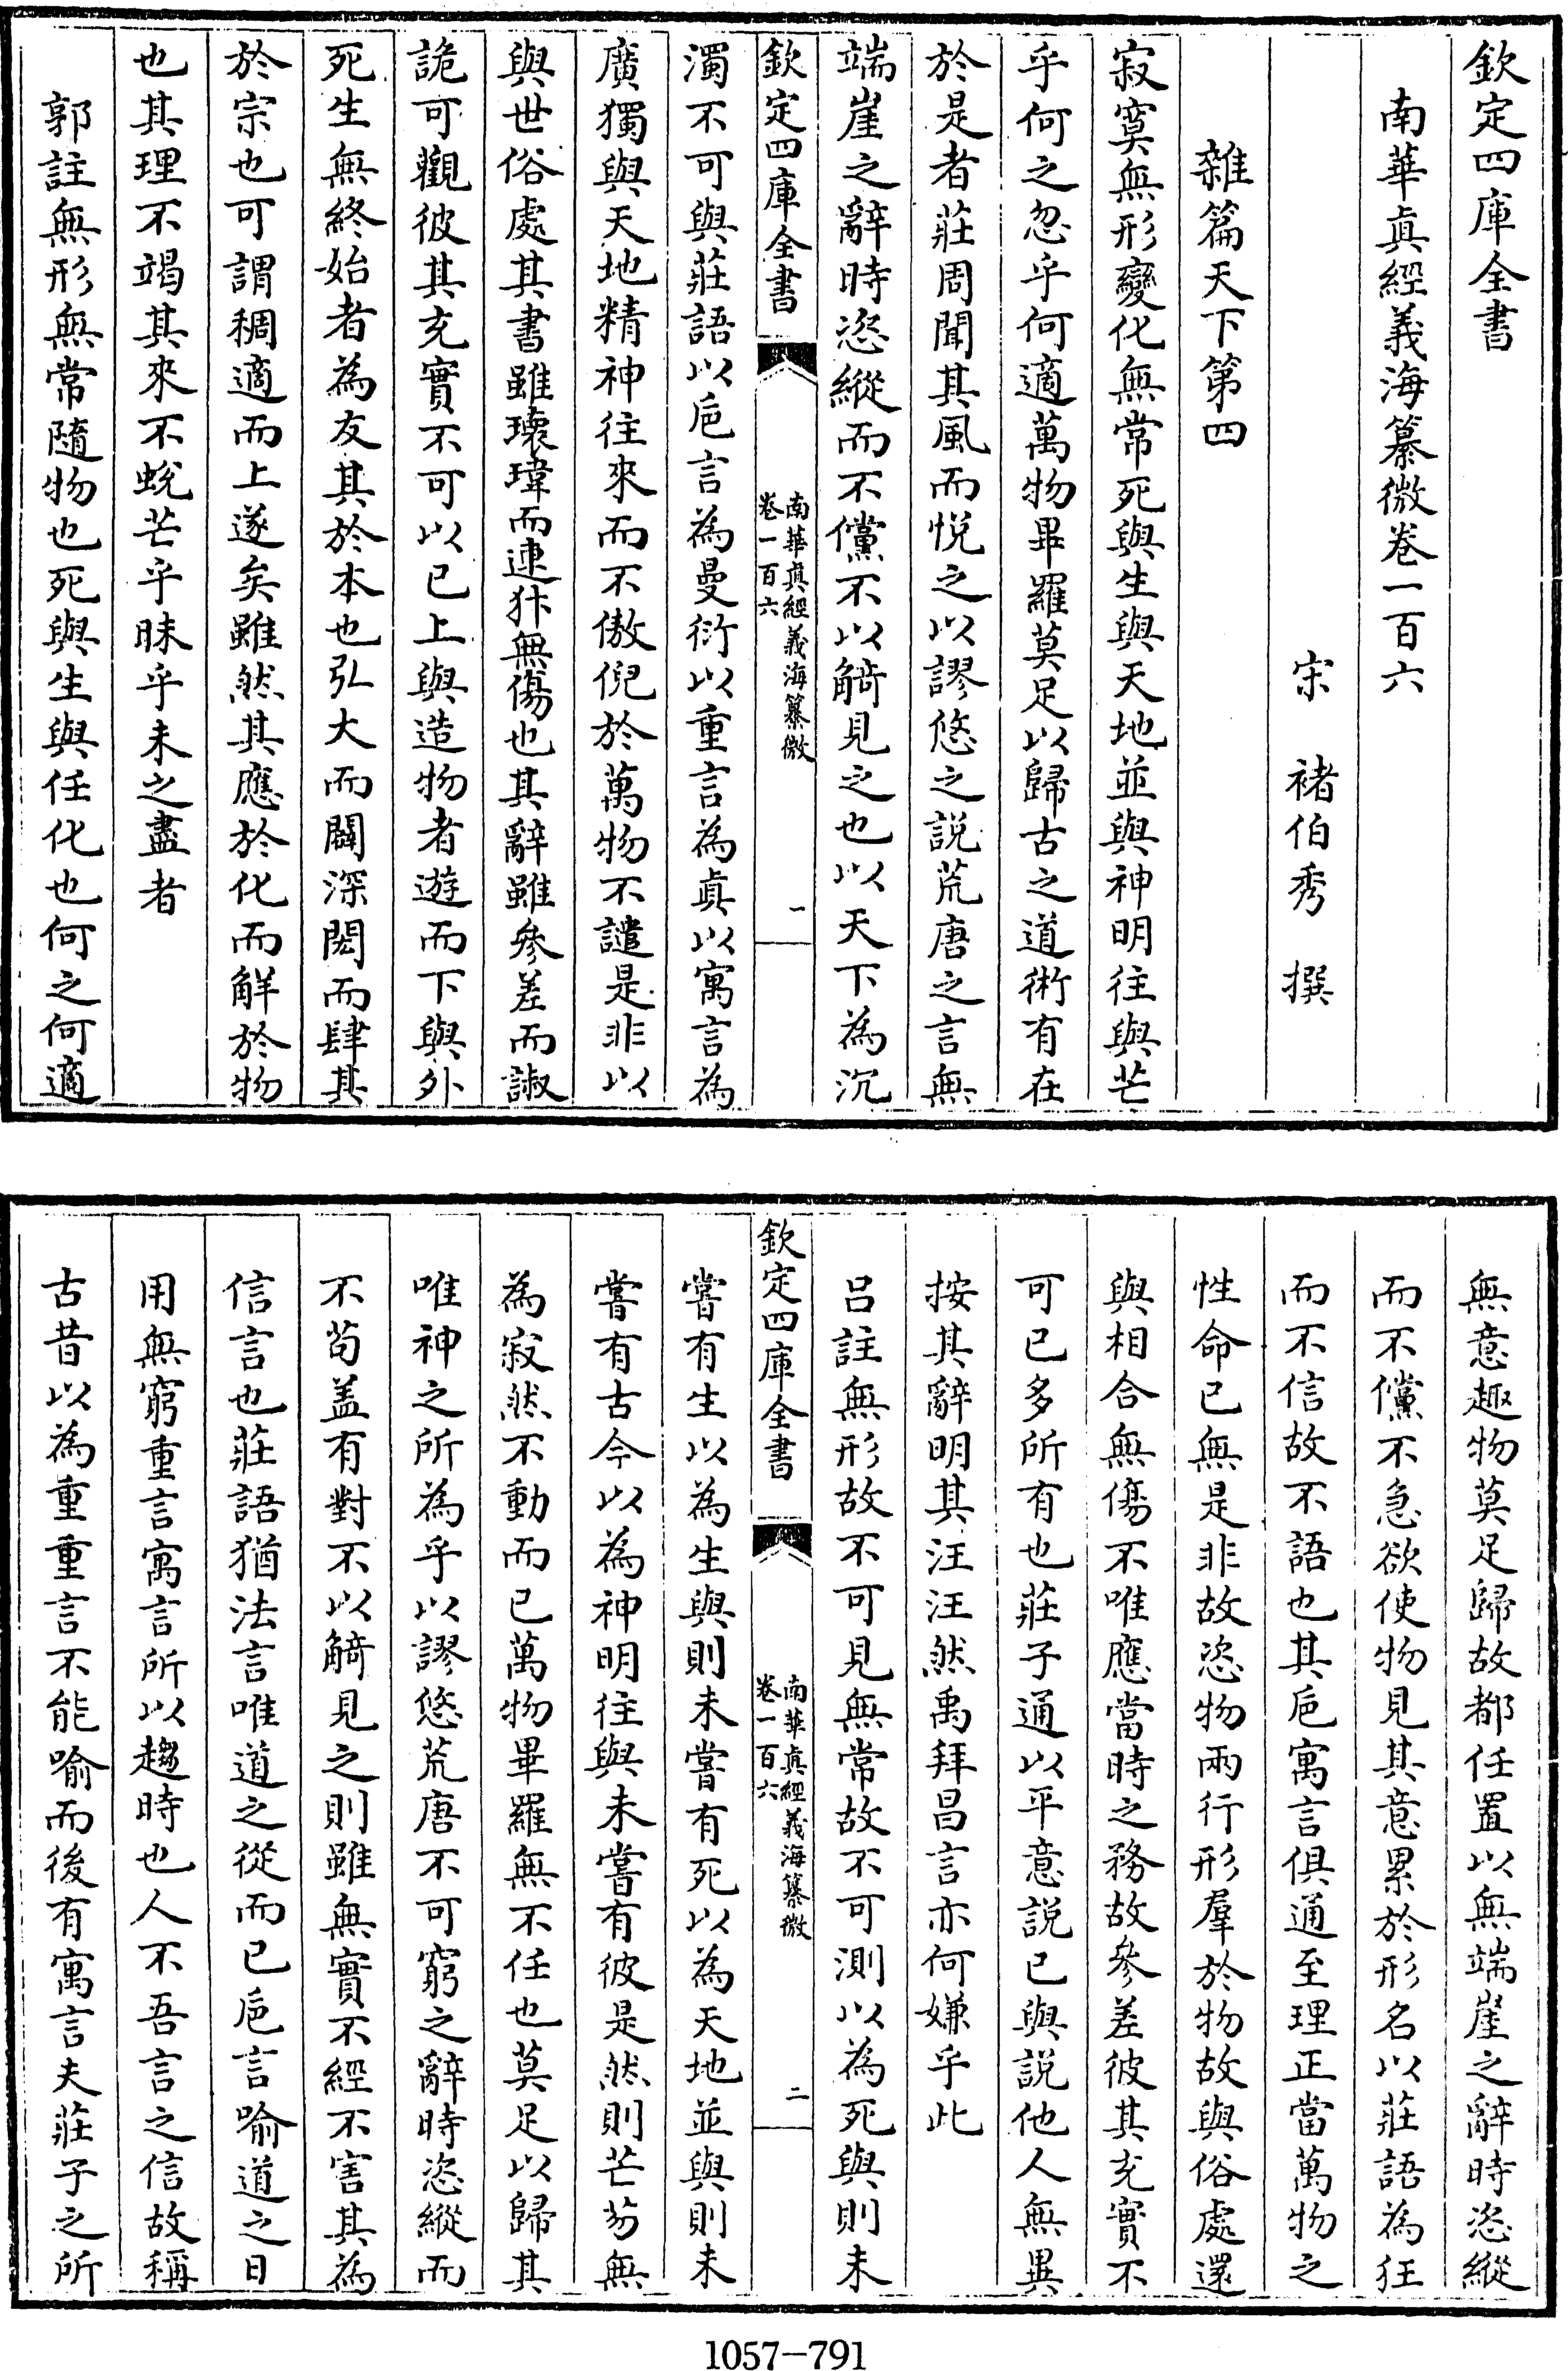 欽定四庫全書
南華真經義海纂微卷一百六
宋　褚伯秀　撰
雜篇天下第四
寂寞無形變化無常死與生與天地並與神明往與芒
乎何之忽乎何適萬物畢羅莫足以歸古之道術有在
於是者莊周聞其風而悅之以謬悠之說荒唐之言無
端崖之辭時恣縱而不儻不以觭見之也以天下為沉
欽定四庫全書
南華真經義海纂微
卷一百六
一
濁不可與莊語以巵言為曼衍以重言為真以寓言為
廣獨與天地精神往來而不傲倪於萬物不譴是非以
與世俗處其書雖瓌瑋而連犿無傷也其辭雖參差而諔
詭可觀彼其充實不可以已上與造物者遊而下與外
死生無終始者為友其於本也弘大而闢深閎而肆其
於宗也可謂稠適而上遂矣雖然其應於化而解於物
也其理不竭其來不蛻芒乎昧乎未之盡者
郭註無形無常隨物也死與生與任化也何之何適
無意趣物莫足歸故都任置以無端崖之辭時恣縱
而不儻不急欲使物見其意累於形名以莊語為狂
而不信故不語也其巵寓言俱通至理正當萬物之
性命已無是非故恣物兩行形羣於物故與俗處還
與相合無傷不唯應當時之務故參差彼其充實不
可已多所有也莊子通以平意說已與說他人無異
按其辭明其汪汪然禹拜昌言亦何嫌乎此
呂註無形故不可見無常故不可測以為死與則未
欽定四庫全書
南華真經義海纂微
卷一百六
二
嘗有生以為生與則未嘗有死以為天地並與則未
嘗有古今以為神明往與未嘗有彼是然則芒芴無
為寂然不動而已萬物畢羅無不任也莫足以歸其
唯神之所為乎以謬悠荒唐不可窮之辭時恣縱而
不苟盖有對不以觭見之則雖無實不經不害其為
信言也莊語猶法言唯道之從而已巵言喻道之日
用無窮重言寓言所以趨時也人不吾言之信故稱
古昔以為重重言不能喻而後有寓言夫莊子之所
1057-791